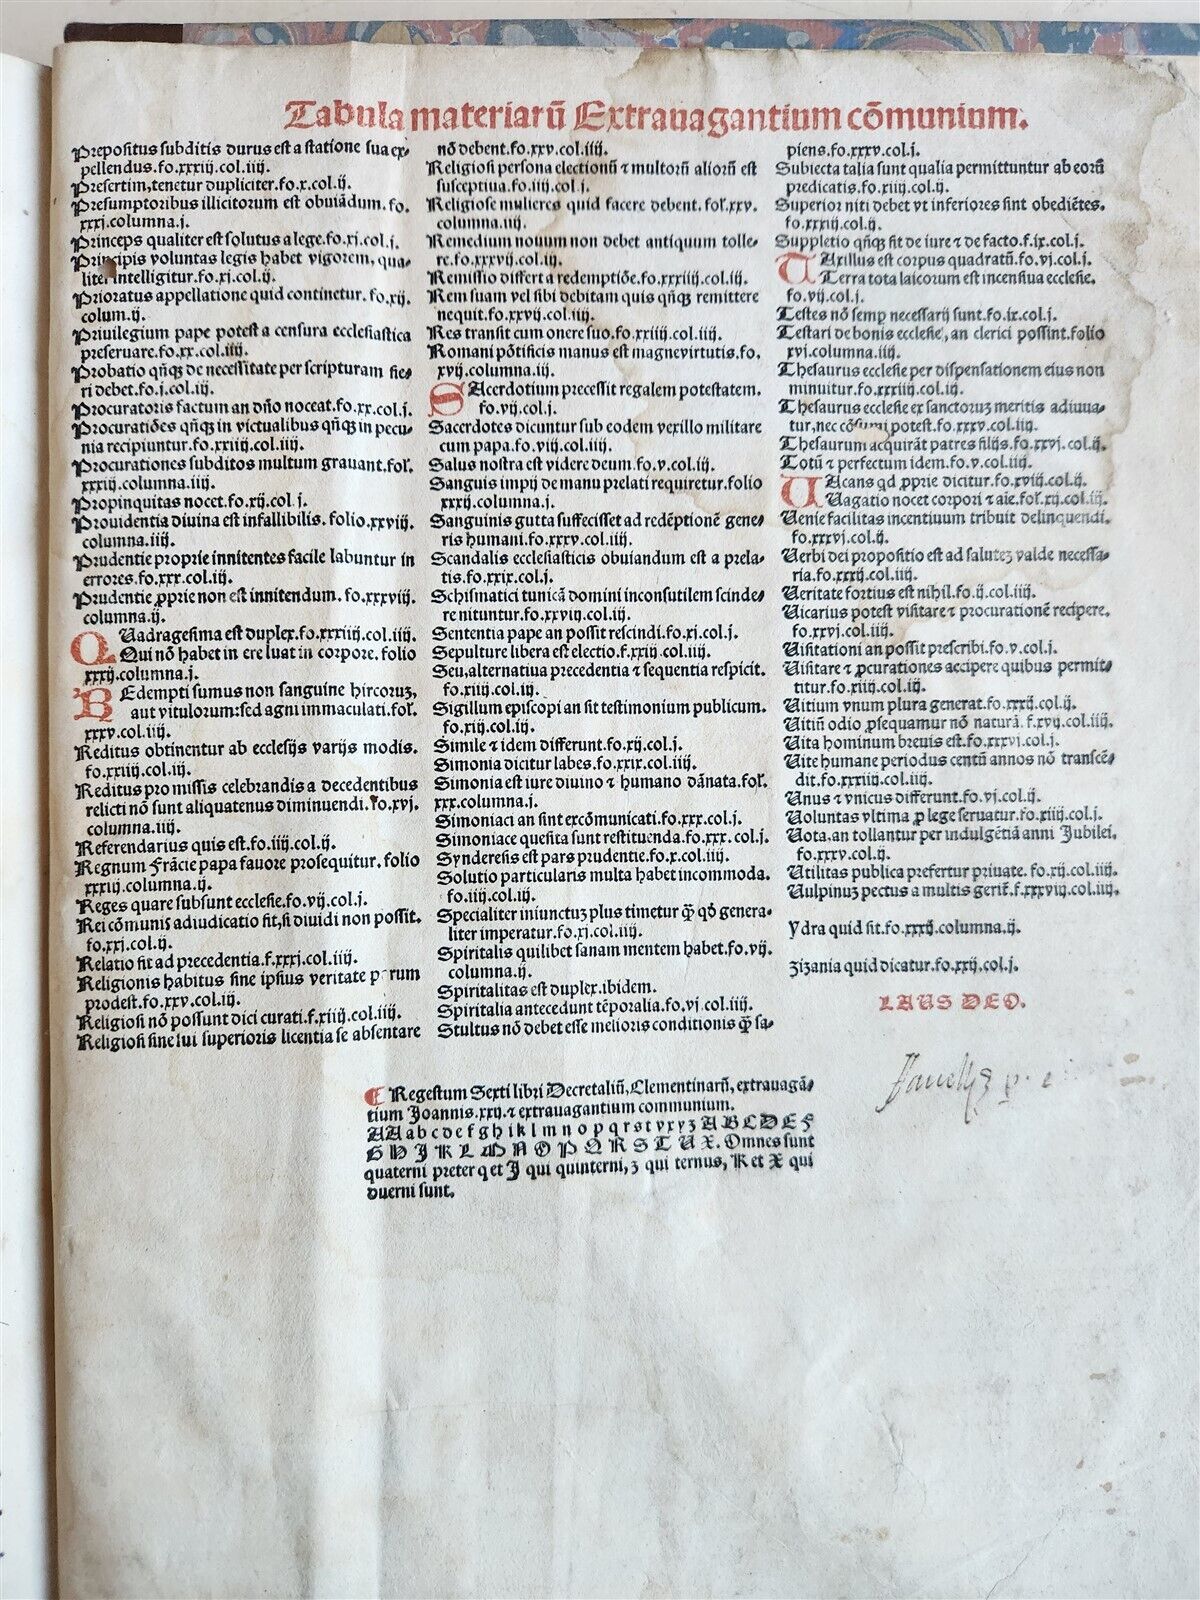 Tabula materiarū Extrauagantium cōmunium.
Prepositus subditis durus est a statione sua ex-
pellendus.fo.xxxiij.col.iiij.
Presertim,tenetur dupliciter.fo.x.col.ij.
Presumptoribus illicitorum est obuiādum.fo.
xxxj.columna.j.
Princeps qualiter est solutus a lege.fo.xj.col.j.
Principis voluntas legis habet vigorem, qua-
liter intelligitur.fo.xj.col.ij.
Prioratus appellatione quid continetur.fo.xij.
colum.ij.
Priuilegium pape potest a censura ecclesiastica
preseruare.fo.xx.col.iiij.
Probatio qñqꝫ de necessitate per scripturam fie-
ri debet.fo.j.col.iij.
Procuratoris factum an dño noceat.fo.xx.col.j.
Procuratiões qñqꝫ in victualibus qñqꝫ in pecu-
nia recipiuntur.fo.xxiiij.col.iiij.
Procurationes subditos multum grauant.fol.
xxxiij.columna.iiij.
Propinquitas nocet.fo.xij.col.j.
Prouidentia diuina est infallibilis.folio.xxviij.
columna.iiij.
Prudentie proprie innitentes facile labuntur in
errores.fo.xxx.col.iij.
Prudentie ꝓprie non est innitendum.fo.xxxviij.
columna.ij.
QUadragesima est duplex.fo.xxxiiij.col.iiij.
Qui nō habet in ere luat in corpore.folio
xxxij.columna.j.
REdempti sumus non sanguine hircoruꝫ,
aut vitulorum:sed agni immaculati.fol.
xxxv.col.iiij.
Reditus obtinentur ab ecclesijs varijs modis.
fo.xxiiij.col.iij.
Reditus pro missis celebrandis a decedentibus
relicti nō sunt aliquatenus diminuendi.fo.xvj.
columna.iiij.
Referendarius quis est.fo.iiij.col.ij.
Regnum Frācie papa fauore prosequitur.folio
xxxiij.columna.ij.
Reges quare subsunt ecclesie.fo.vij.col.j.
Rei cōmunis adiudicatio fit,si diuidi non possit.
fo.xxj.col.ij.
Relatio fit ad precedentia.f.xxxj.col.iiij.
Religionis habitus sine ipsius veritate parum
prodest.fo.xxv.col.iij.
Religiosi nō possunt dici curati.f.xiij.col.iiij.
Religiosi sine sui superioris licentia se absentare
nō debent.fo.xxv.col.iiij.
Religiosi persona electionū ⁊ multorū aliorū est
susceptiua.fo.iiij.col.j.
Religiose mulieres quid facere debent.fol.xxv.
columna.iiij.
Remedium nouum non debet antiquum tolle-
re.fo.xxxvij.col.iij.
Remissio differt a redemptiõe.fo.xxxiiij.col.iiij.
Rem suam vel sibi debitam quis qñqꝫ remittere
nequit.fo.xxvij.col.iiij.
Res transit cum onere suo.fo.xxiiij.col.iiij.
Romani pōtificis manus est magne virtutis.fo.
xvij.columna.iiij.
SAcerdotium precessit regalem potestatem.
fo.vij.col.j.
Sacerdotes dicuntur sub eodem vexillo militare
cum papa.fo.viij.col.iiij.
Salus nostra est videre deum.fo.v.col.iij.
Sanguis impij de manu prelati requiretur.folio
xxxij.columna.j.
Sanguinis gutta suffecisset ad redēptionē gene-
ris humani.fo.xxxv.col.iiij.
Scandalis ecclesiasticis obuiandum est a prela-
tis.fo.xxix.col.j.
Schismatici tunicā domini inconsutilem scinde-
re nituntur.fo.xxviij.col.iij.
Sententia pape an possit rescindi.fo.xj.col.j.
Sepulture libera est electio.f.xxiij.col.iiij.
Seu,alternatiua precedentia ⁊ sequentia respicit.
fo.xiiij.col.iij.
Sigillum episcopi an sit testimonium publicum.
fo.xij.col.iij.
Simile ⁊ idem differunt.fo.xij.col.j.
Simonia dicitur labes.fo.xxix.col.iiij.
Simonia est iure diuino ⁊ humano dānata.fol.
xxx.columna.j.
Simoniaci an sint excōmunicati.fo.xxx.col.j.
Simoniace quesita sunt restituenda.fo.xxx.col.j.
Synderesis est pars prudentie.fo.x.col.iiij.
Solutio particularis multa habet incommoda.
fo.iiij.col.iij.
Specialiter iniunctuꝫ plus timetur q̄ꝫ qđ genera-
liter imperatur.fo.xj.col.iij.
Spiritalis quilibet sanam mentem habet.fo.vij.
columna.ij.
Spiritalitas est duplex.ibidem.
Spiritalia antecedunt tēporalia.fo.vj.col.iiij.
Stultus nō debet esse melioris conditionis q̄ꝫ sa-
piens.fo.xxxv.col.j.
Subiecta talia sunt qualia permittuntur ab eorū
predicatis.fo.xiij.col.ij.
Superior niti debet vt inferiores sint obediētes.
fo.xxxiij.col.ij.
Suppletio qñqꝫ fit de iure ⁊ de facto.f.ix.col.j.
TAxillus est corpus quadratū.fo.vj.col.j.
Terra tota laicorum est incensiua ecclesie.
fo.vij.col.j.
Testes nō semꝑ necessarij sunt.fo.ix.col.j.
Testari de bonis ecclesie,an clerici possint.folio
xvj.columna.iiij.
Thesaurus ecclesie per dispensationem eius non
minuitur.fo.xxxiiij.col.iij.
Thesaurus ecclesie ex sanctoruꝫ meritis adiuua-
tur,nec cōsumi potest.fo.xxxv.col.iiij.
Thesaurum acquirāt patres filijs.fo.xxvj.col.ij.
Totū ⁊ perfectum idem.fo.v.col.iiij.
UAcans qđ ꝓprie dicitur.fo.xviij.col.ij.
Uagatio nocet corpori ⁊ aīe.fol.xij.col.iij.
Uenie facilitas incentiuum tribuit delinquendi.
fo.xxxvj.col.ij.
Uerbi dei propositio est ad saluteꝫ valde necessa-
ria.fo.xxxij.col.iiij.
Ueritate fortius est nihil.fo.ij.col.iiij.
Uicarius potest visitare ⁊ procurationē recipere.
fo.xxvj.col.iiij.
Uisitationi an possit prescribi.fo.v.col.j.
Uisitare ⁊ ꝓcurationes accipere quibus permit-
titur.fo.xiij.col.iij.
Uitium vnum plura generat.fo.xxxij.col.ij.
Uitiū odio ꝓsequamur nō naturā.f.xvij.col.iiij.
Uita hominum breuis est.fo.xxxvj.col.j.
Uite humane periodus centū annos nō transcē-
dit.fo.xxxiiij.col.iij.
Unus ⁊ vnicus differunt.fo.vj.col.ij.
Uoluntas vltima ꝓ lege seruatur.fo.xiiij.col.j.
Uota.an tollantur per indulgētiā anni Jubilei.
fo.xxxv.col.ij.
Utilitas publica prefertur priuate.fo.xij.col.iiij.
Uulpinuꝫ pectus a multis gerit̄.f.xxxviij.col.iiij.
Ydra quid sit.fo.xxxij.columna.ij.
Zizania quid dicatur.fo.xxij.col.j.
LAUS DEO.
¶ Regestum Sexti libri Decretaliū,Clementinarū,extrauagā-
tium Joannis.xxij.⁊ extrauagantium communium.
AA a b c d e f g h i k l m n o p q r s t v x y z A B C D E F
G H J K L M N O P Q R S T U X. Omnes sunt
quaterni preter q et J qui quinterni, z qui ternus, K et X qui
duerni sunt.